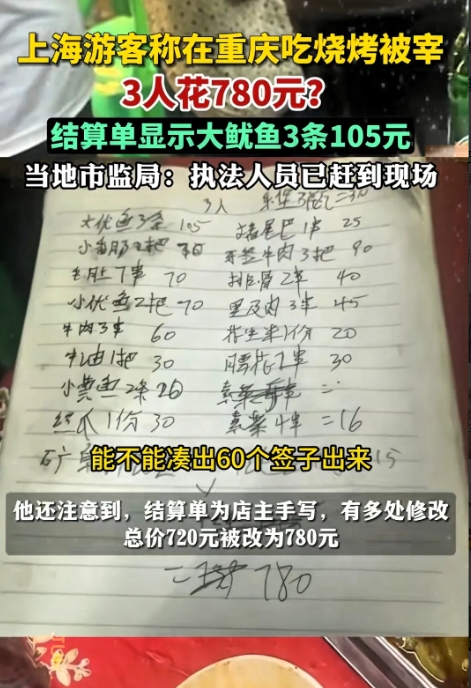 上海游客称在重庆吃烧烤被宰
3人花780元?
结算单显示大鱿鱼3条105元
当地市监局：执法人员已赶到现场
3人
大优鱼3条 105 猪尾巴1串 25
牙签牛肉3把 90
70 排骨2串 40
小优鱼2把 70 里及肉3串 45
牛肉3串 60 花生米1份 20
牛油1把 30 腰花2串 30
小黄鱼2条 26
丝瓜1份 30 素菜4串 =16
矿 15
能不能凑出60个签子出来
他还注意到，结算单为店主手写，有多处修改
总价720元被改为780元
780